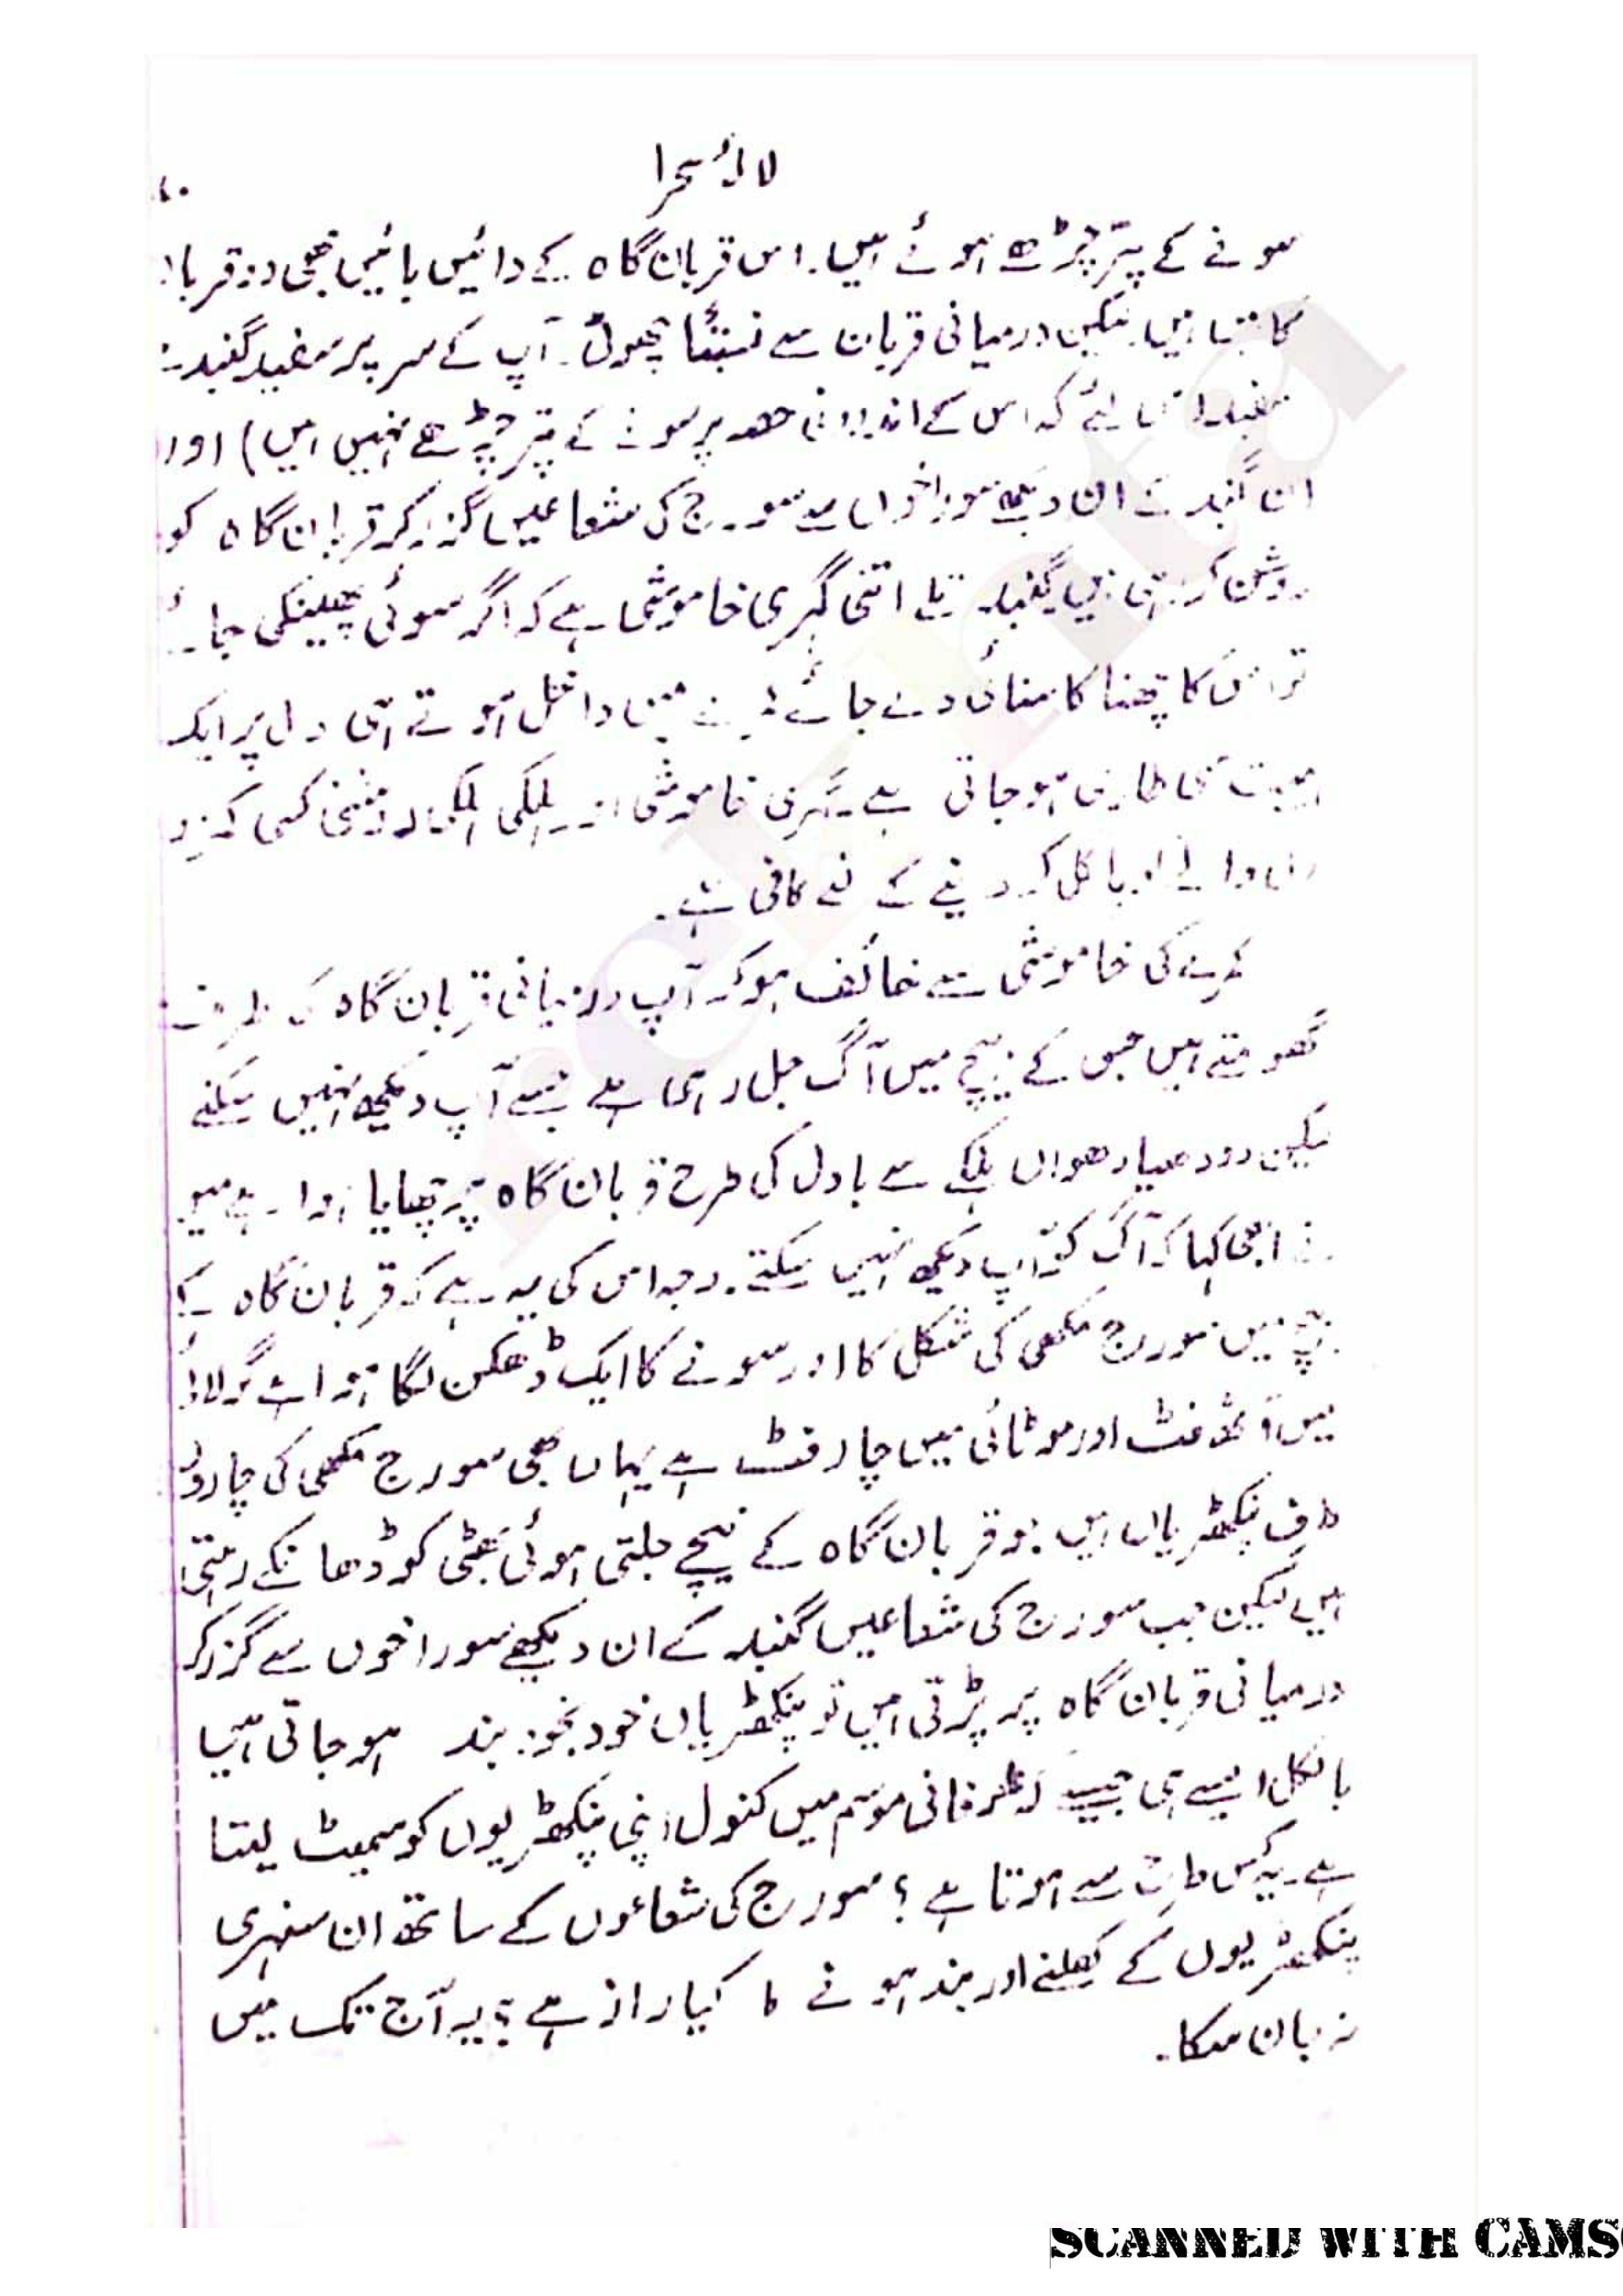 لالۂ صحرا
سونے کے پتر چڑھے ہوئے ہیں۔ اس قربان گاہ کے دائیں بائیں بھی دو قربان
گاہیں ہیں لیکن درمیانی قربان سے نسبتاً چھوٹی۔ آپ کے سر پر سفید گنبد ہے
سفید اس لئے کہ اس کے اندرونی حصہ پر سونے کے پتر چڑھے نہیں ہیں) اور
ان گنبد کے ان دیکھے سوراخوں سے سورج کی شعاعیں گزر کر قربان گاہ کو
روشن کر رہی ہیں گنبد تلے اتنی گہری خاموشی ہے کہ اگر سوئی پھینکی جائے
تو اس کا چھنا کا سنائی دے جائے داخل ہوتے ہی دل پر ایک
ہیبت سی طاری ہو جاتی ہے۔ گہری خاموشی اور ہلکی ہلکی روشنی کسی کمزور
دل والے کو پاگل کر دینے کے لئے کافی ہے۔
کمرے کی خاموشی سے خائف ہو کر آپ درمیانی قربان گاہ کی طرف
گھومتے ہیں جس کے بیچ میں آگ جل رہی ہے جسے آپ دیکھ نہیں سکتے
لیکن دودھیا دھواں ہلکے سے بادل کی طرح قربان گاہ پر چھایا ہوا ہے میں
نے ابھی کہا کہ آگ کو آپ دیکھ نہیں سکتے۔ وجہ اس کی یہ ہے کہ قربان گاہ کے
بیچ میں سورج مکھی کی شکل کا اور سونے کا ایک ڈھکن لگا ہوا ہے گولائی
میں آٹھ فٹ اور موٹائی میں چار فٹ ہے یہاں بھی سورج مکھی کی چاروں
طرف پنکھڑیاں ہیں جو قربان گاہ کے نیچے جلتی ہوئی بھٹی کو ڈھانکے رہتی
ہیں لیکن جب سورج کی شعاعیں گنبد کے ان دیکھے سوراخوں سے گزر کر
درمیانی قربان گاہ پر پڑتی ہیں تو پنکھڑیاں خود بخود بند ہو جاتی ہیں
بالکل ایسے ہی جیسے کہ طوفانی موسم میں کنول اپنی پنکھڑیوں کو سمیٹ لیتا
ہے۔ یہ کس طرح سے ہوتا ہے؟ سورج کی شعاعوں کے ساتھ ان سنہری
پنکھڑیوں کے کھلنے اور بند ہونے کا کیا راز ہے؟ یہ آج تک میں
نہ جان سکا۔
rekhta
SCANNED WITH CAMS